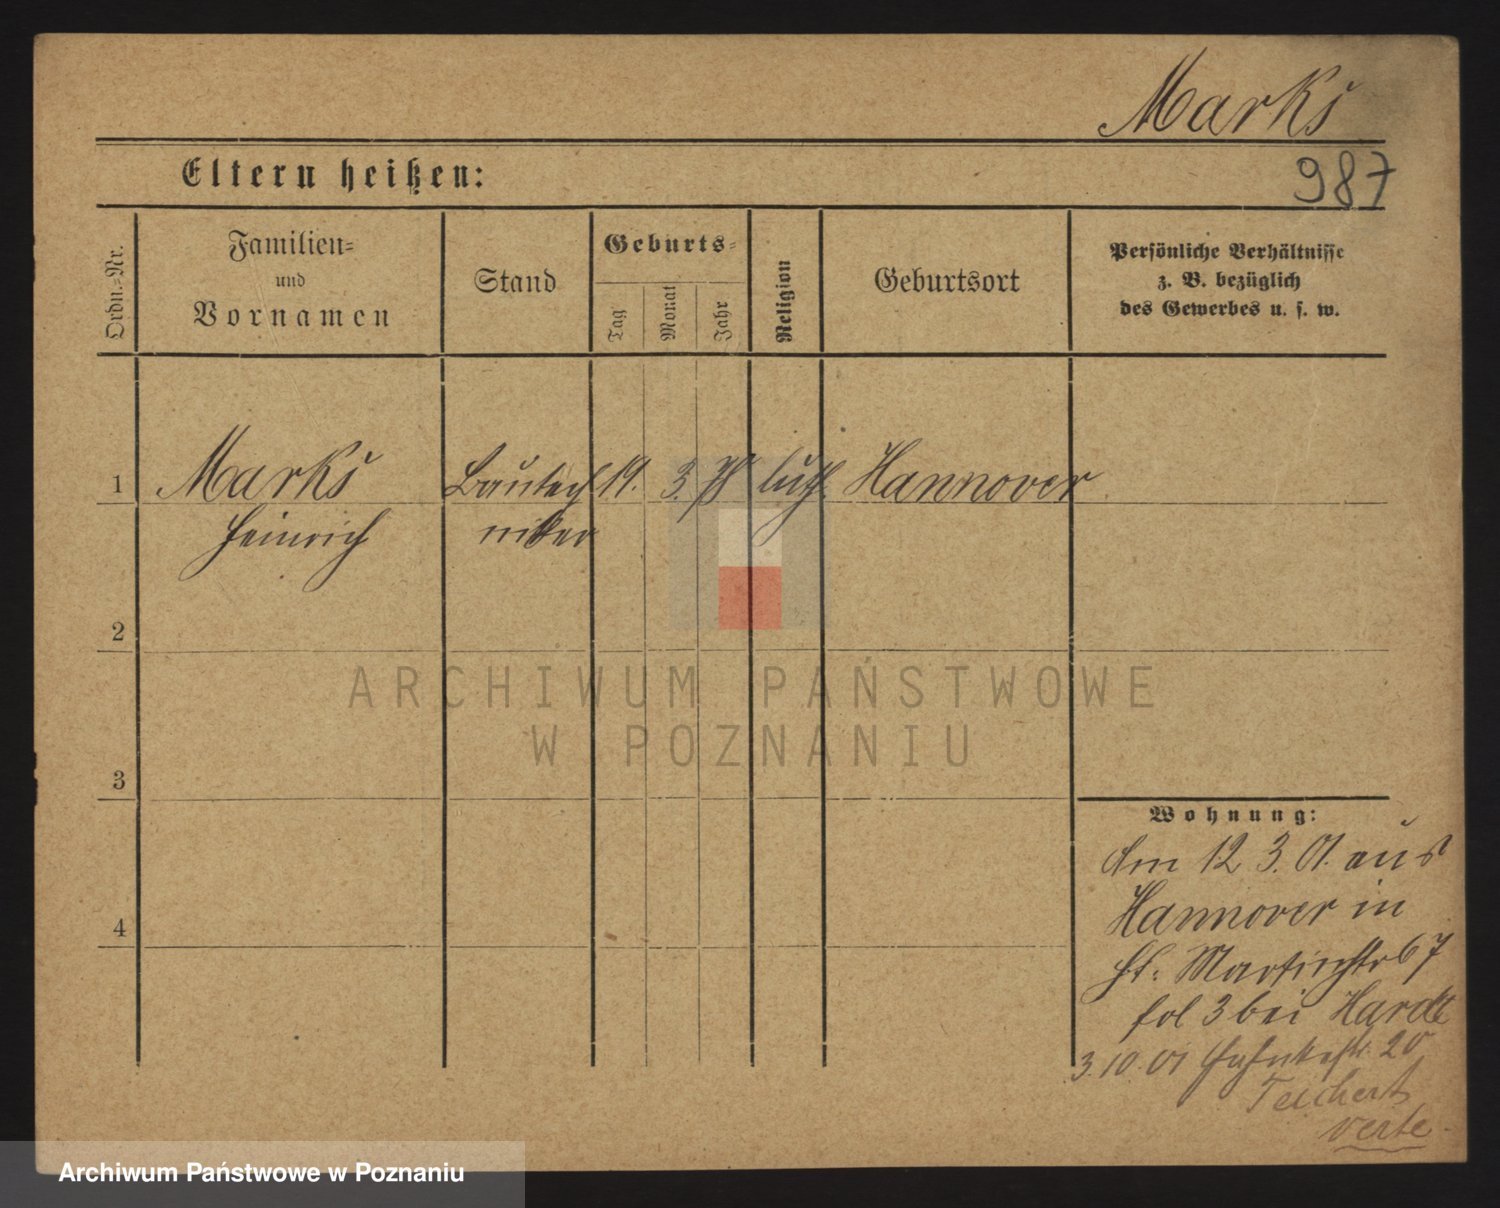 Marks
Eltern heißen:
987
Ordn.-Nr.
Familien-
und
Vornamen
Stand
Geburts-
Tag
Monat
Jahr
Religion
Geburtsort
Persönliche Verhältnisse
z. B. bezüglich
des Gewerbes u. s. w.
1
Marks
Bautech
19.
3.
78
luth.
Hannover
Heinrich
niker
2
ARCHIWUM PAŃSTWOWE
W POZNANIU
3
Wohnung:
Am 12 3. 01. aus
Hannover in
St. Martinstr 67
fol 3 bei Hardt
4
3.10.01 20
Teichert
verte.
Archiwum Państwowe w Poznaniu